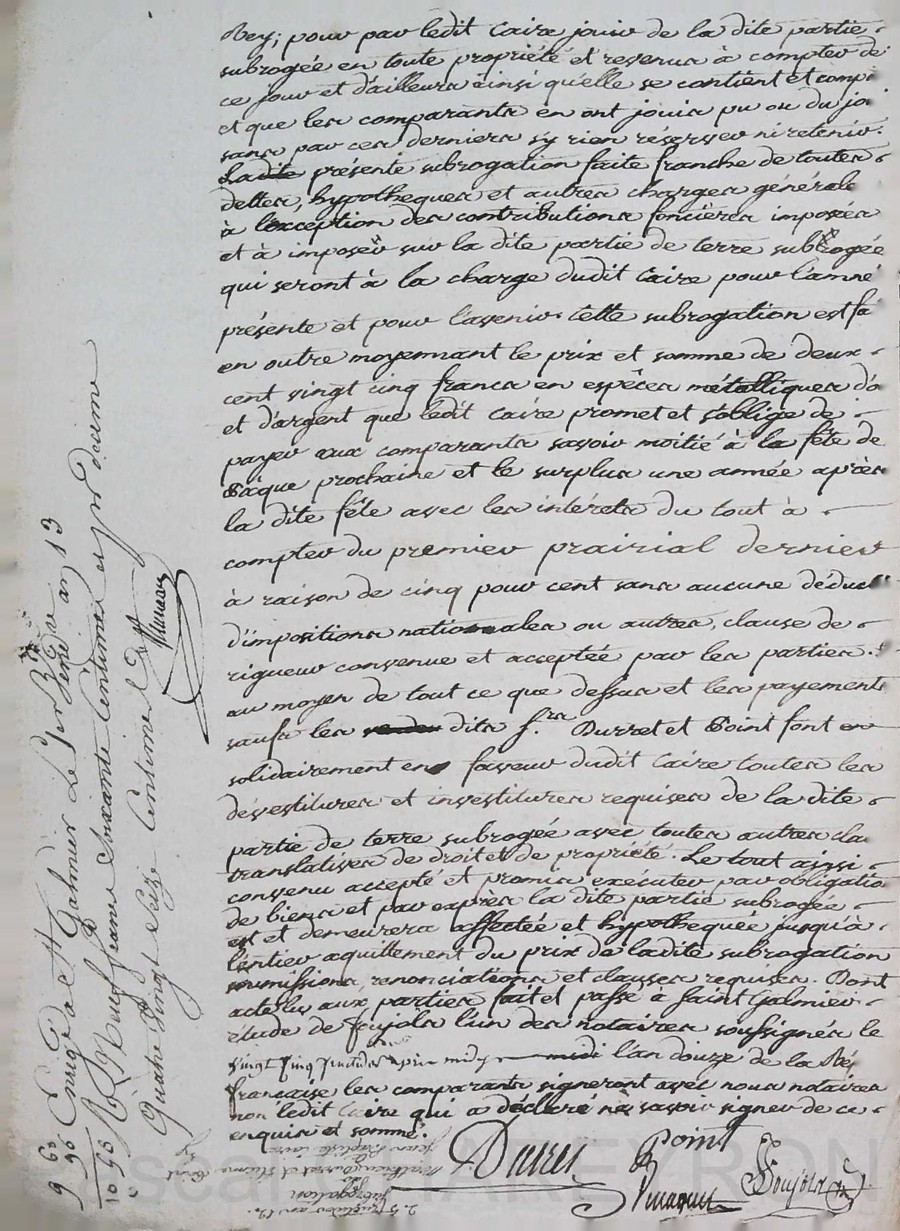 Rey; pour par ledit Caire jouir de la dite partie
subrogée en toute propriété et revenus à compter de
ce jour et d'ailleurs ainsi qu'elle se contient et comp
et que les comparants en ont jouis pu ou du jo
sans par ces derniers s'y rien réserver ni retenir.
La dite présente subrogation faite franche de toutes
dettes, hypotheques et autres charges générale
à l'exception des contributions foncières imposées
et à imposer sur la dite partie de terre subrogée
qui seront à la charge dudit Caire pour l'anné
présente et pour l'avenir. Cette subrogation est fa
en outre moyennant le prix et somme de deux
cent vingt cinq francs en espèces métalliques d'o
et d'argent que ledit Caire promet et s'oblige de
payer aux comparants savoir moitié à la fête de
Pâque prochaine et le surplus une année après
la dite fête avec les intérets du tout à
compter du premier prairial dernier
à raison de cinq pour cent sans aucune déduct
d'impositions nationales ou autres, clause de
rigueur convenue et acceptée par les parties.
au moyen de tout ce que dessus et les payements
saufs les dits Durret et Point font en
solidairement en faveur dudit Caire toutes les
dévestitures et investitures requises de la dite
partie de terre subrogée avec toutes autres clau
translatives de droit et de propriété. Le tout ainsi
convenu accepté et promis exécuter par obligatio
de biens et par exprès la dite partie subrogée
est et demeurera affectée et hypothequée jusqu'à
l'entier aquittement du prix de ladite subrogation
soumissions, renonciations et clauses requises. Dont
acte lu aux parties fait et passé à Saint Galmier
étude de Foujols l'un des notaires soussignés le
vingt cinq fructidor après midy midi l'an douze de la Ré
française les comparants signeront avec nous notaires
non ledit Caire qui a déclaré ne savoir signer de ce
enquis et sommé.
Durret Point
Foujols
Enreg. à St Galmier Le
an 13
Neuf francs Soixante Centimes et pr decime
Quatre Vingt Seize Centimes
9 60
96
10 56
25 fructidor an 12.
Subrogation
Durret et Etienne Point
Jean Baptiste Caire